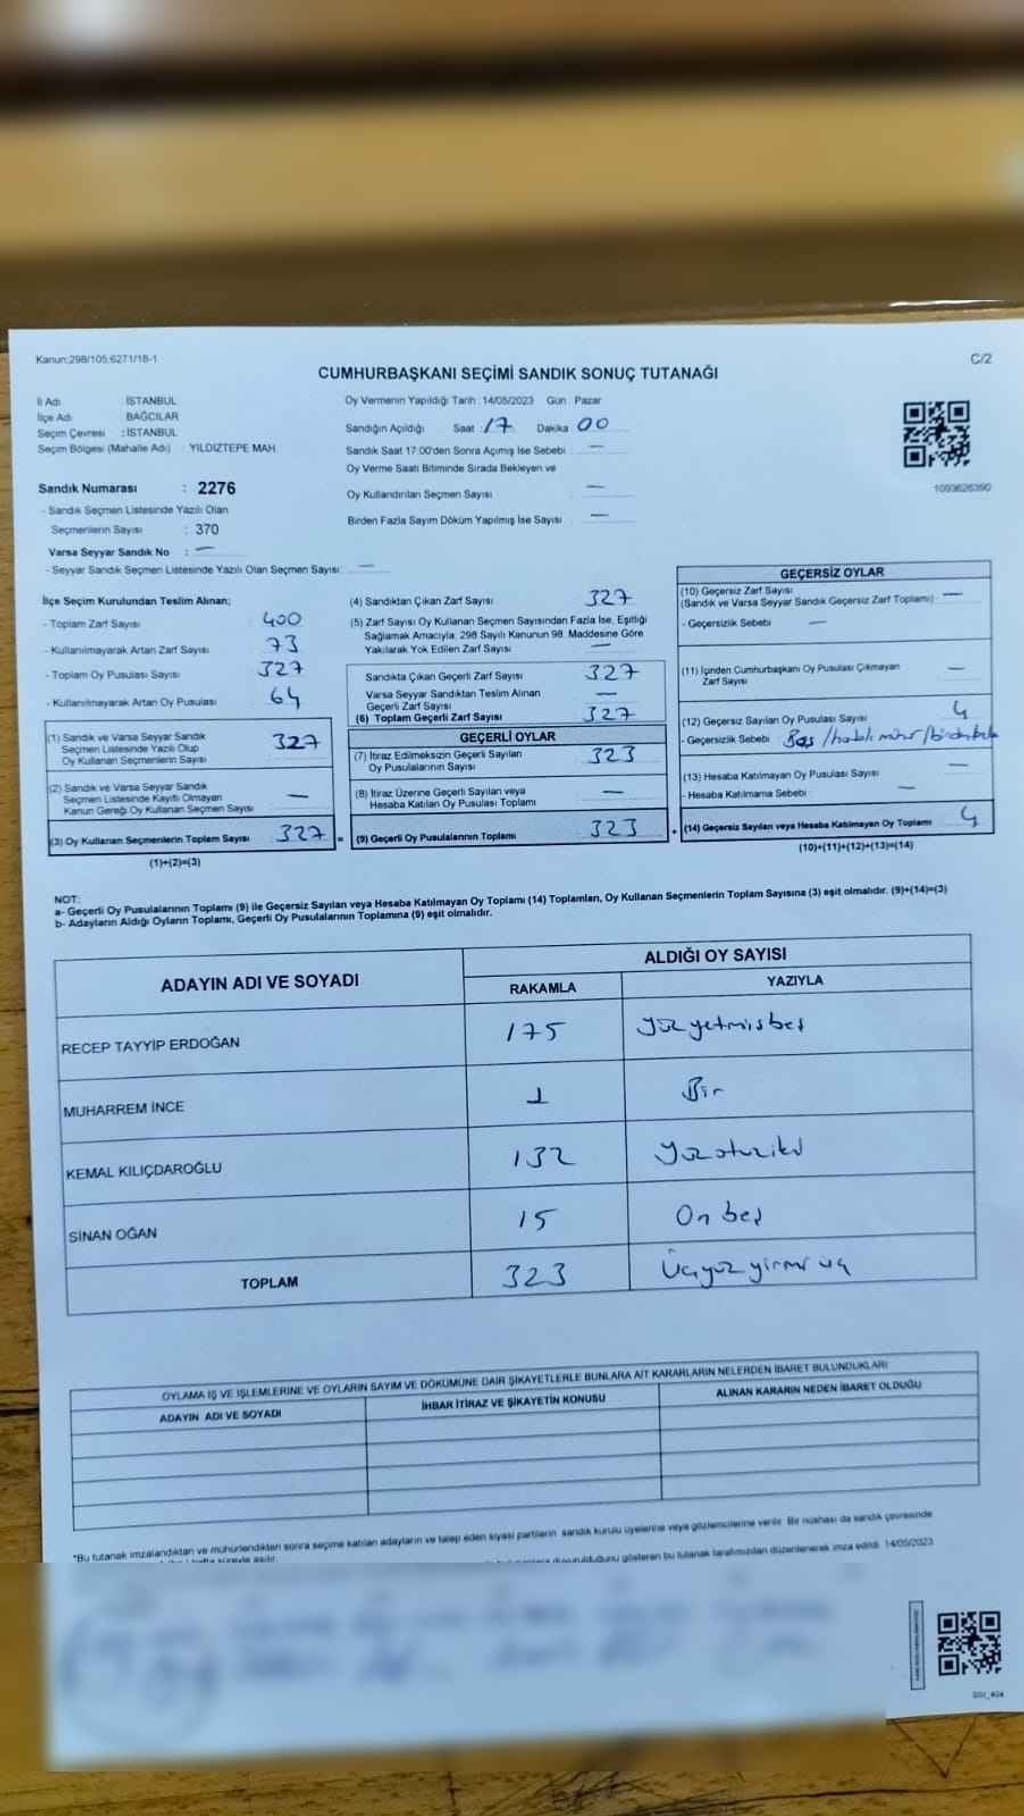 Kanun:298/105,6271/18-1
C/2
CUMHURBAŞKANI SEÇİMİ SANDIK SONUÇ TUTANAĞI
İl Adı : İSTANBUL
İlçe Adı : BAĞCILAR
Seçim Çevresi : İSTANBUL
Seçim Bölgesi (Mahalle Adı) YILDIZTEPE MAH.
Oy Vermenin Yapıldığı Tarih : 14/05/2023 Gün : Pazar
Sandığın Açıldığı Saat : 17 Dakika 00
Sandık Saat 17:00'den Sonra Açımış İse Sebebi : —
Oy Verme Saati Bitiminde Sırada Bekleyen ve
Oy Kullandırılan Seçmen Sayısı —
Birden Fazla Sayım Döküm Yapılmış İse Sayısı —
1093626390
Sandık Numarası : 2276
- Sandık Seçmen Listesinde Yazılı Olan
Seçmenlerin Sayısı : 370
Varsa Seyyar Sandık No : —
- Seyyar Sandık Seçmen Listesinde Yazılı Olan Seçmen Sayısı: —
İlçe Seçim Kurulundan Teslim Alınan;
- Toplam Zarf Sayısı 400
- Kullanılmayarak Artan Zarf Sayısı 73
- Toplam Oy Pusulası Sayısı 327
- Kullanılmayarak Artan Oy Pusulası 64
(1) Sandık ve Varsa Seyyar Sandık
Seçmen Listesinde Yazılı Olup
Oy Kullanan Seçmenlerin Sayısı 327
(2) Sandık ve Varsa Seyyar Sandık
Seçmen Listesinde Kayıtlı Olmayan
Kanun Gereği Oy Kullanan Seçmen Sayısı —
(3) Oy Kullanan Seçmenlerin Toplam Sayısı 327 =
(1)+(2)=(3)
(4) Sandıktan Çıkan Zarf Sayısı 327
(5) Zarf Sayısı Oy Kullanan Seçmen Sayısından Fazla İse, Eşitliği
Sağlamak Amacıyla, 298 Sayılı Kanunun 98. Maddesine Göre
Yakılarak Yok Edilen Zarf Sayısı —
Sandıkta Çıkan Geçerli Zarf Sayısı 327
Varsa Seyyar Sandıktan Teslim Alınan
Geçerli Zarf Sayısı —
(6) Toplam Geçerli Zarf Sayısı 327
GEÇERLİ OYLAR
(7) İtiraz Edilmeksizin Geçerli Sayılan
Oy Pusulalarının Sayısı 323
(8) İtiraz Üzerine Geçerli Sayılan veya
Hesaba Katılan Oy Pusulası Toplamı —
(9) Geçerli Oy Pusulalarının Toplamı 323 +
GEÇERSİZ OYLAR
(10) Geçersiz Zarf Sayısı
(Sandık ve Varsa Seyyar Sandık Geçersiz Zarf Toplamı) —
- Geçersizlik Sebebi —
(11) İçinden Cumhurbaşkanı Oy Pusulası Çıkmayan
Zarf Sayısı —
(12) Geçersiz Sayılan Oy Pusulası Sayısı 4
- Geçersizlik Sebebi Boş / hatalı mühür /
(13) Hesaba Katılmayan Oy Pusulası Sayısı —
- Hesaba Katılmama Sebebi —
(14) Geçersiz Sayılan veya Hesaba Katılmayan Oy Toplamı 4
(10)+(11)+(12)+(13)=(14)
NOT:
a- Geçerli Oy Pusulalarının Toplamı (9) ile Geçersiz Sayılan veya Hesaba Katılmayan Oy Toplamı (14) Toplamları, Oy Kullanan Seçmenlerin Toplam Sayısına (3) eşit olmalıdır. (9)+(14)=(3)
b- Adayların Aldığı Oyların Toplamı, Geçerli Oy Pusulalarının Toplamına (9) eşit olmalıdır.
ADAYIN ADI VE SOYADI
ALDIĞI OY SAYISI
RAKAMLA YAZIYLA
RECEP TAYYİP ERDOĞAN 175 Yüzyetmişbeş
MUHARREM İNCE 1 Bir
KEMAL KILIÇDAROĞLU 132 Yüzotuziki
SİNAN OĞAN 15 On beş
TOPLAM 323 Üçyüz yirmi üç
OYLAMA İŞ VE İŞLEMLERİNE VE OYLARIN SAYIM VE DÖKÜMÜNE DAİR ŞİKAYETLERLE BUNLARA AİT KARARLARIN NELERDEN İBARET BULUNDUKLARI
ADAYIN ADI VE SOYADI İHBAR İTİRAZ VE ŞİKAYETİN KONUSU ALINAN KARARIN NEDEN İBARET OLDUĞU
*Bu tutanak imzalandıktan ve mühürlendikten sonra seçime katılan adayların ve talep eden siyasi partilerin sandık kurulu üyelerine veya gözlemcilerine verilir. Bir nüshası da sandık çevresinde
duyurulduğunu gösteren bu tutanak tarafımızdan düzenlenerek imza edildi. 14/05/2023